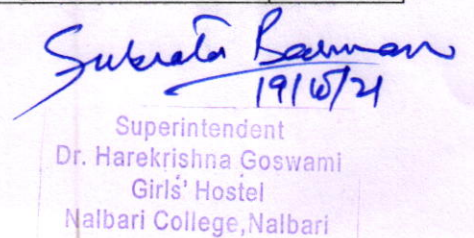 Barman
19/10/21
Superintendent
Dr. Harekrishna Goswami
Girls' Hostel
Nalbari College, Nalbari